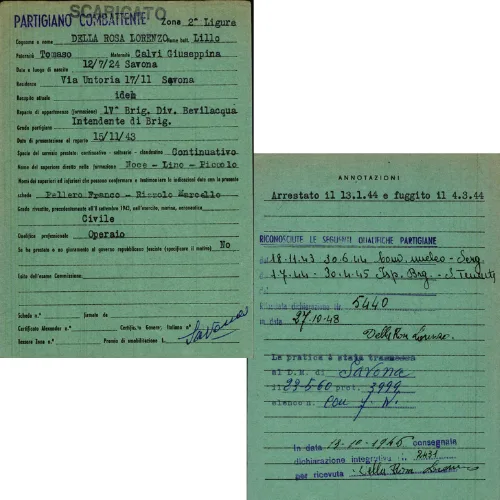 SCARICATO
PARTIGIANO COMBATTENTE Zone 2ª Ligure
Cognome e nome DELLA ROSA LORENZO Nome batt. Lillo
Paternità Tomaso Maternità Calvi Giuseppina
Data e luogo di nascita 12/7/24 Savona
Residenza Via Untoria 17/11 Savona
Recapito attuale idem
Reparto di appartenenza (formazione) IVª Brig. Div. Bevilacqua
Grado partigiano Intendente di Brig.
Data di presentazione al reparto 15/11/43
Specie del servizio prestato: continuativo - saltuario - clandestino Continuativo
Nome del superiore diretto nella formazione Noce - Lino - Piccolo
Nomi dei superiori ed inferiori che possono confermare e testimoniare le indicazioni date con la presente
scheda Pellero Franco - Rizzolo Marcello
Grado rivestito, precedentemente all'8 settembre 1943, nell'esercito, marina, aeronautica
Civile
Qualifica professionale Operaio
Se ha prestato o no giuramento al governo repubblicano fascista (specificare il motivo) No
Esito dell'esame Commissione:
Scheda n. firmata da
Certificato Alexander n. Certificato Generale Italiano n.
Benzere Zona n. Premio di smobilitazione L.
Savona
ANNOTAZIONI
Arrestato il 13.1.44 e fuggito il 4.3.44
RICONOSCIUTE LE SEGUENTI QUALIFICHE PARTIGIANE
dal 18.11.43 30.6.44 Com. nucleo - Serg.
dal 1.7.44 - 30.4.45 Isp. Brg. - S. Tenente
dichiarazione 5440
in data 27-10-48
Della Rosa Lorenzo
La pratica è stata trasmessa
al D.M. di Savona
il 23-5-60 prot. 3999
elenco n. con f. N.
In data 19-10-1946 consegnata
dichiarazione integrativa n. 2431
per ricevuta Della Rosa Lorenzo